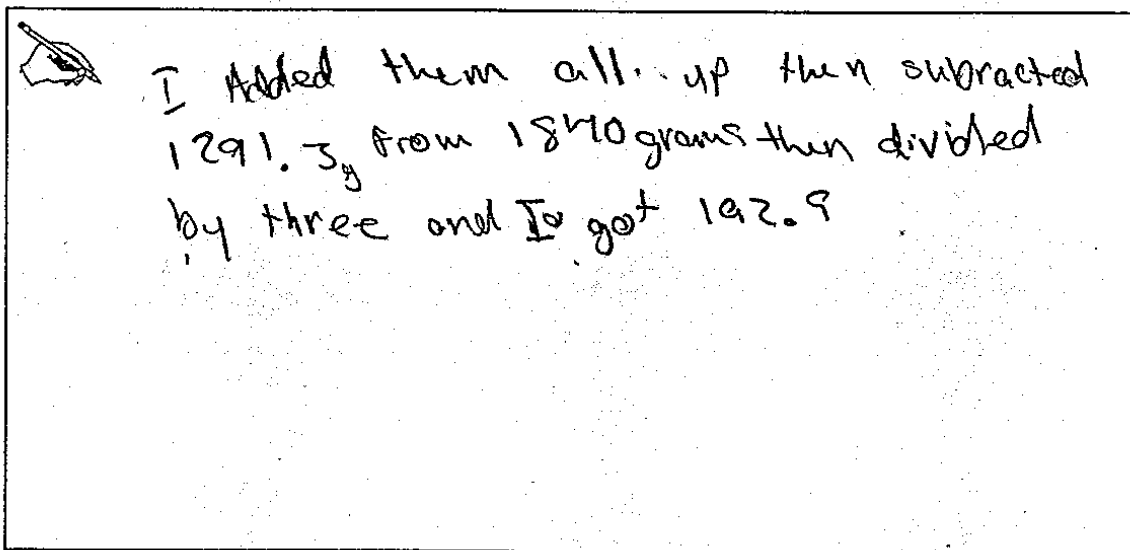 I Added them all up then subracted
1291.3g from 1870grams then divided
by three and I got 192.9